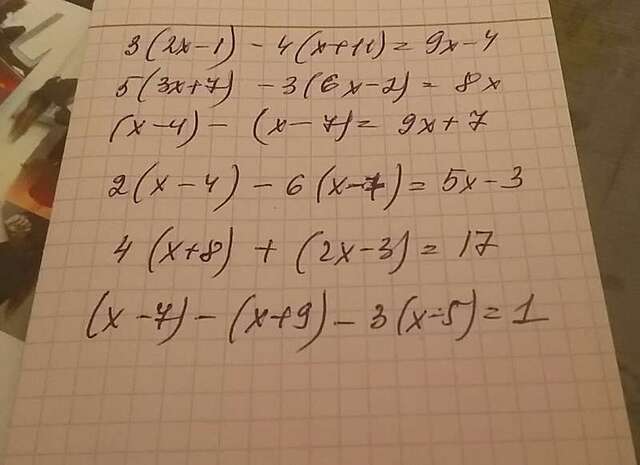 3(2x-1) - 4(x+11) = 9x-4
5(3x+7) - 3(6x-2) = 8x
(x-4) - (x-7) = 9x+7
2(x-4) - 6(x-1) = 5x-3
4(x+8) + (2x-3) = 17
(x-7) - (x+9) - 3(x-5) = 1